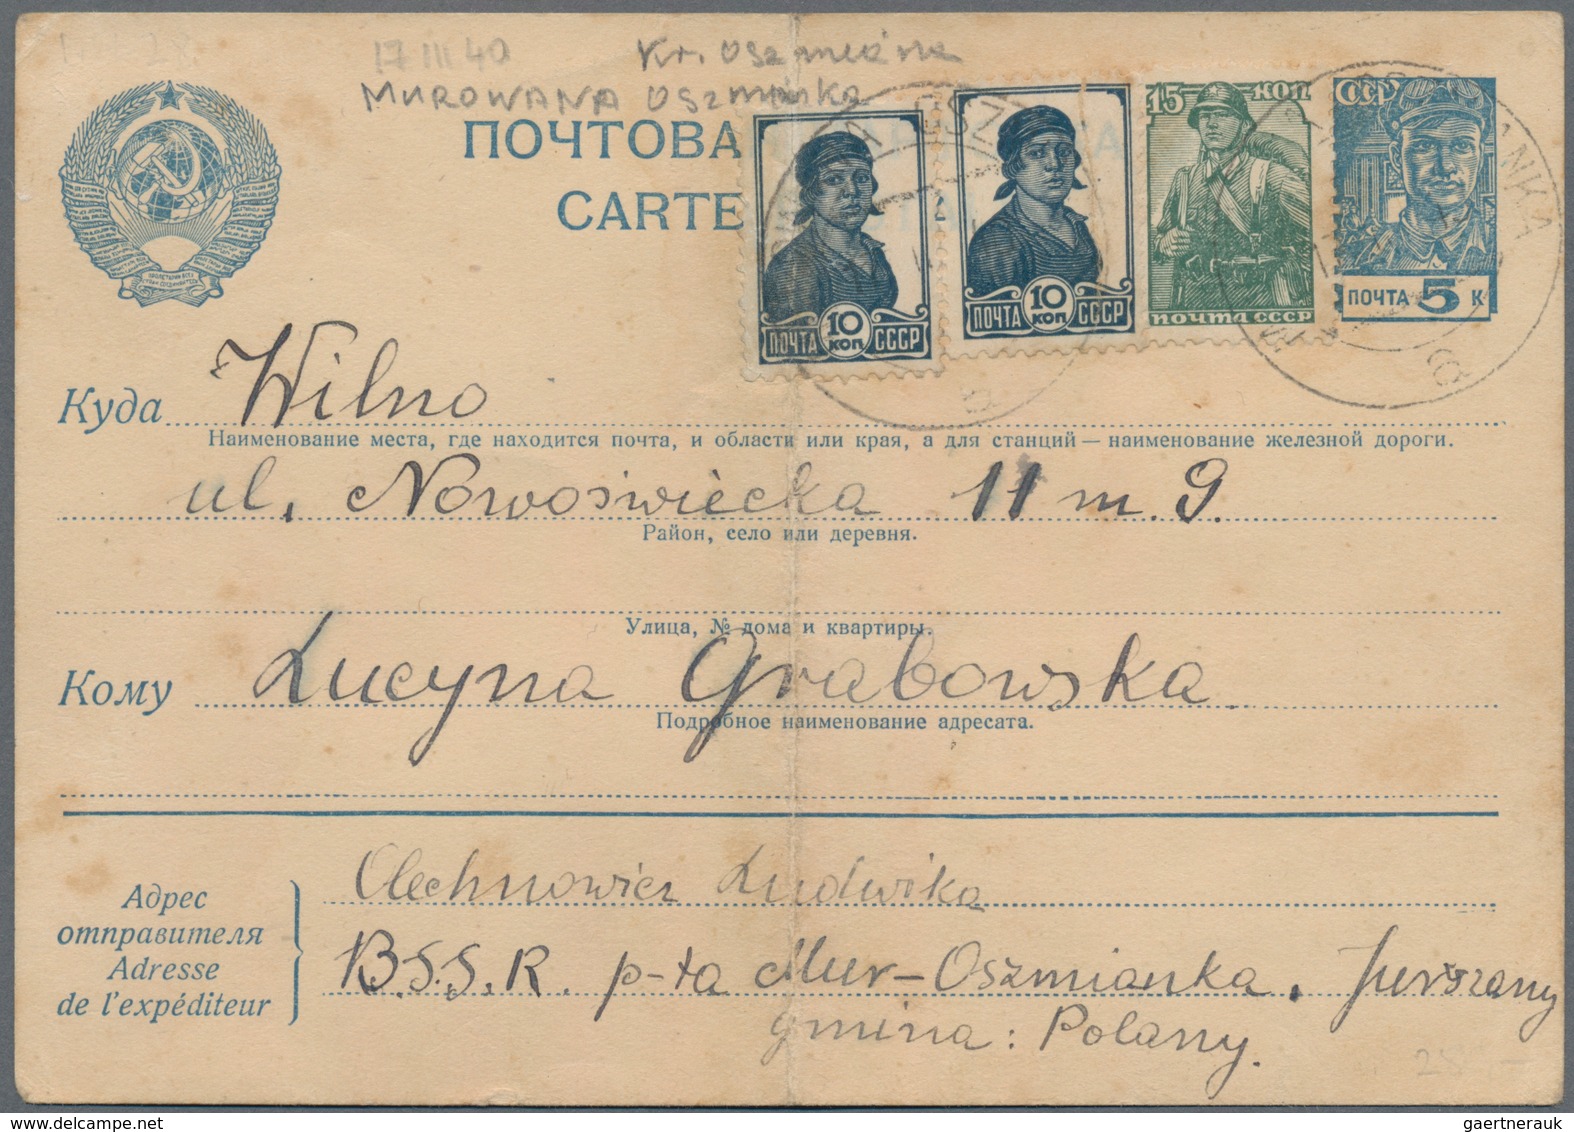 17 III 40 Kr. Oszmiána
MUROWANA Oszmianka
ПОЧТОВА
CARTE
10 КОП ПОЧТА СССР
10 КОП ПОЧТА СССР
15 КОП
ПОЧТА СССР
СССР
ПОЧТА 5 К
Куда Wilno
Наименование места, где находится почта, и области или края, а для станций — наименование железной дороги.
ul. Nowoświecka 11 m. 9.
Район, село или деревня.
Улица, № дома и квартиры.
Кому Lucyna Grabowska.
Подробное наименование адресата.
Адрес
отправителя
Adresse
de l'expéditeur
Olechnowicz Ludwika
B.S.S.R. p-ta Mur-Oszmianka.
gmina: Polany.
gaertnerauk@delcampe.net